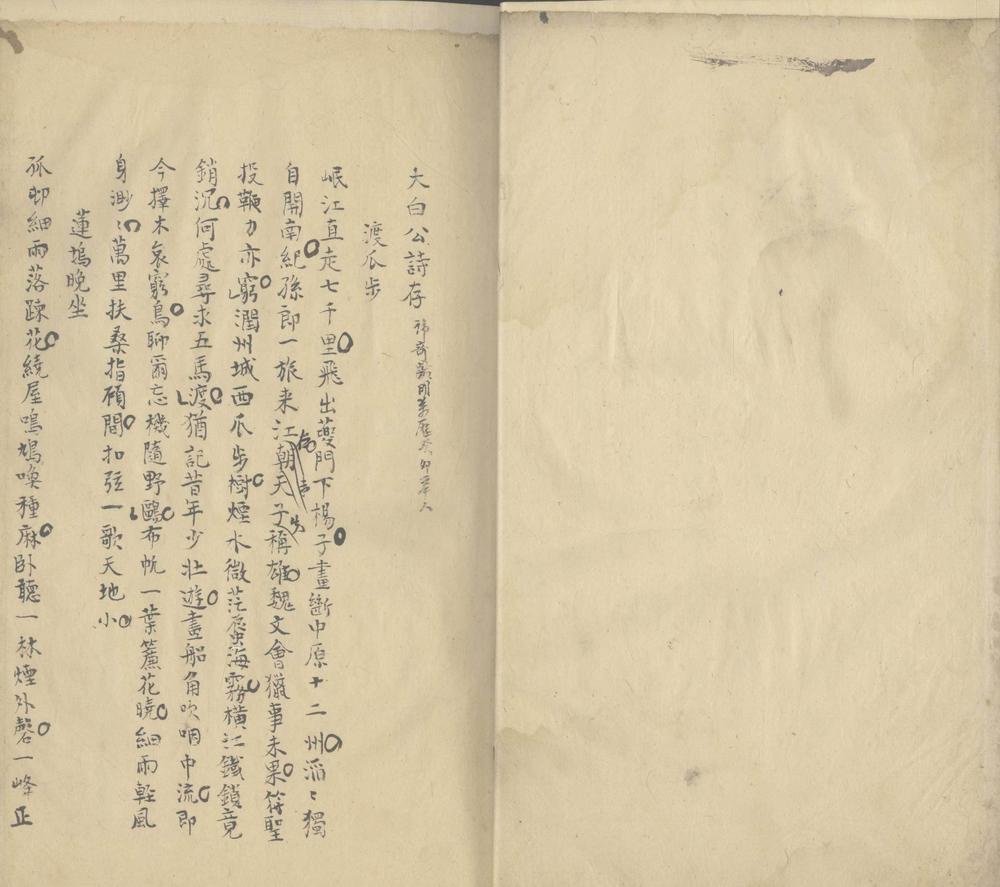 大白公詩存 諱奇 明萬歷癸卯舉人
渡瓜步
岷江直走七千里飛出夔門下楊子畫斷中原十二州滔〻獨
自開南紀孫郎一旅来江朝天子稱雄魏文會獵事未果苻聖
投鞭力亦窮潤州城西瓜步樹煙水微茫蜃海霧橫江鐵鎖竟
銷沉何處尋求五馬渡猶記昔年少壯遊畫船角吹咽中流即
今擇木哀窮鳥聊爾忘機隨野鷗布帆一葉簾花曉細雨輕風
身渺〻萬里扶桑指顧間扣弦一歌天地小
蓮塢晚坐
孤邨細雨落踈花繞屋鳴鳩喚種麻卧聽一林煙外磬一峰正